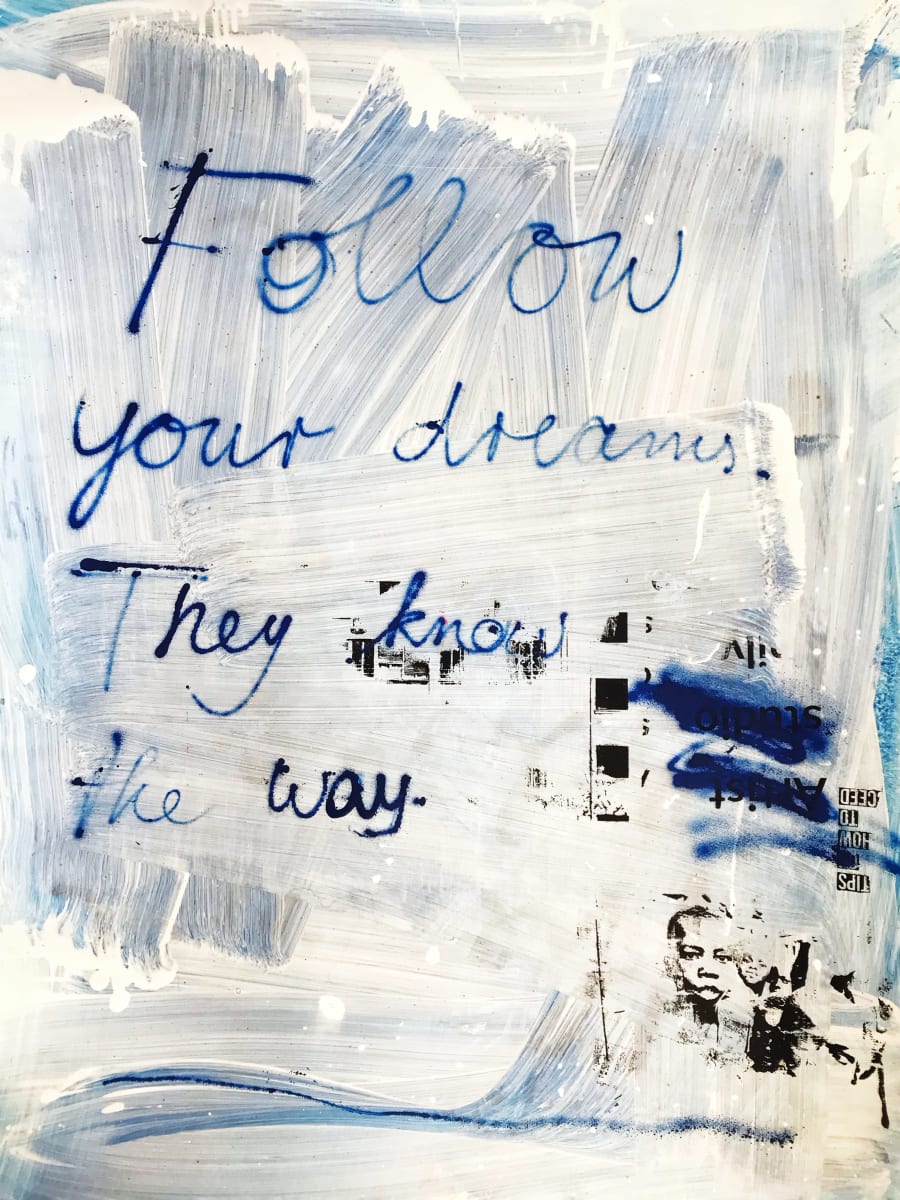 Follow
your dreams.
They know
the way.
studio
Artist
CEED
TO
HOW
TIPS